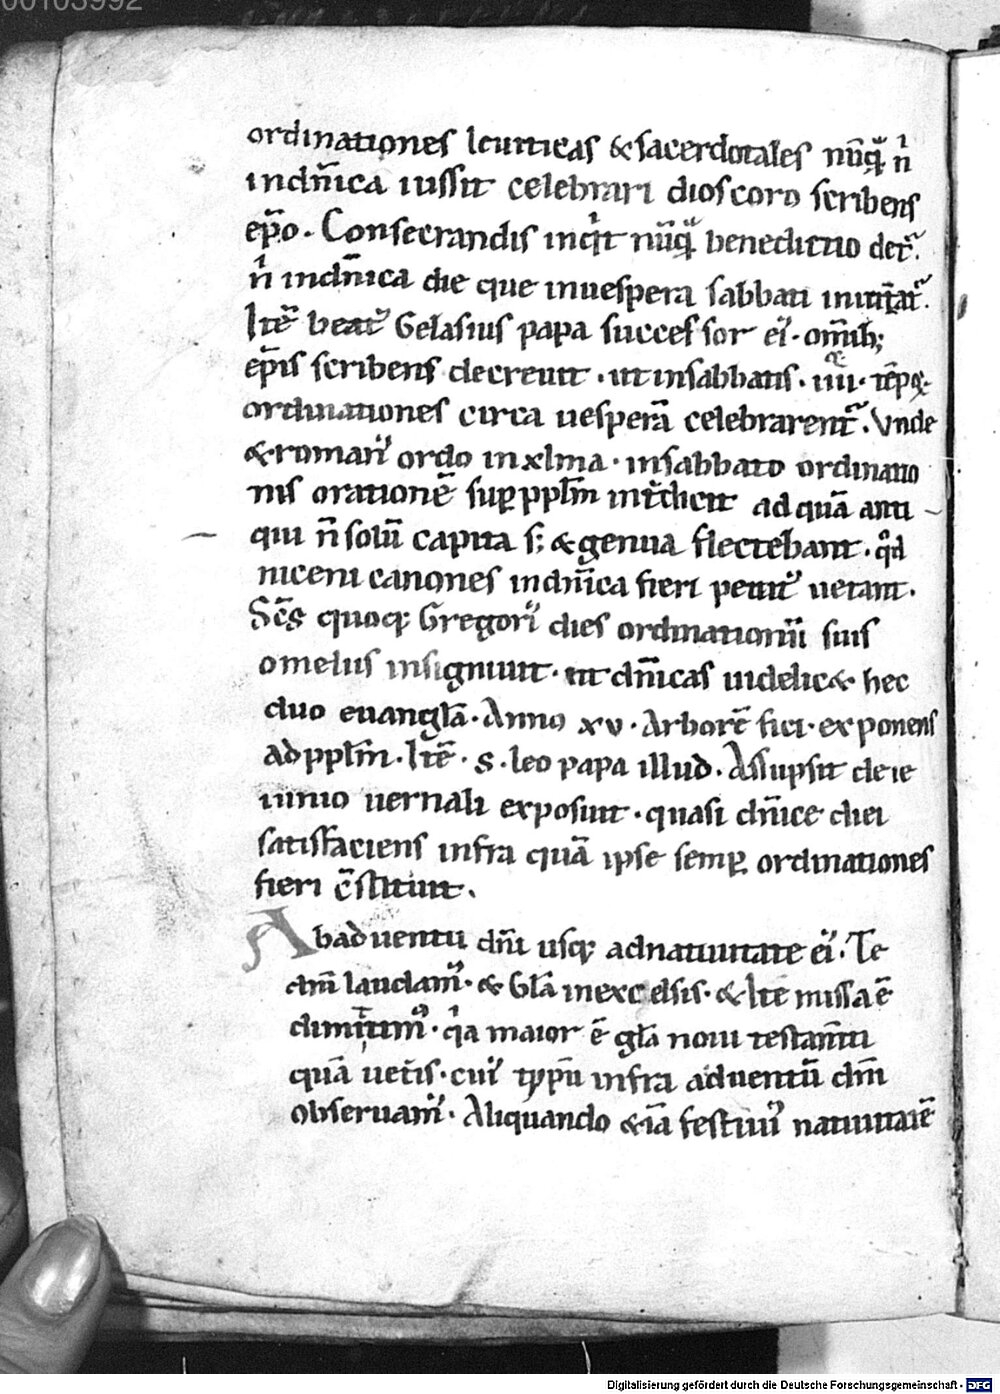 00103992
ordinationes leuiticas & sacerdotales nūq̄ͣ n̍
indn̄ica iussit celebrari dioscoro scribens
ep̄o. Consecrandis inq̍t nūq̄ͣ benedictio det᷑.
n̍ indn̄ica die que inuespera sabbati initiat᷑.
Itē beat᷒ Gelasius papa successor ei᷒. om̄ib;
ep̄is scribens decreuit. ut insabbatis. iiii. tēpꝝ.
ordinationes circa uesperā celebrarent᷑. Vnde
& roman᷒ ordo inxlma. insabbato ordinatio
nis orationē suꝑ ppl̄m int̄dicit ad quā anti
qui n̄ solū capita s; & genua flectebant. qͦd
niceni canones indn̄ica fieri penit᷒ uetant.
Sc̄s quoq; Gregori᷒ dies ordinationū suis
omeliis insigniuit. ut dn̄icas uidelic& hec
duo euangl̄a. Anno xv. Arborē fici. exponens
ad ppl̄m. Itē. S. leo papa illud. Assupsit de ie
iunio uernali exposuit. quasi dn̄ice diei
satisfaciens infra quā ipse semꝑ ordinationes
fieri c̄stituit.
Ab aduentu dn̄i usq; adnatiuitate ei᷒. Te
dm̄ laudam᷒. & Gl̄a inexcelsis. & Ite missa ē
dimittim᷒. q̍a maior ē gl̄a noui testam̄ti
quā uet̄is. cui᷒ typū infra aduentū dn̄i
obseruam᷒. Aliquando &iā festiui᷒ natiuitatē
Digitalisierung gefördert durch die Deutsche Forschungsgemeinschaft - DFG